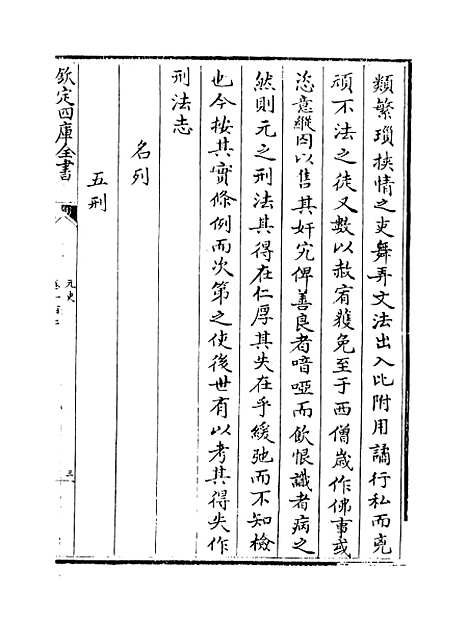 類繁瑣挾情之吏舞弄文法出入比附用譎行私而兇
頑不法之徒又數以赦宥獲免至于西僧歲作佛事或
恣意縱囚以售其奸宄俾善良者喑啞而飲恨識者病之
然則元之刑法其得在仁厚其失在乎緩弛而不知檢
也今按其實條例而次第之使後世有以考其得失作
刑法志
名列
五刑
欽定四庫全書
元史
卷一百二
三